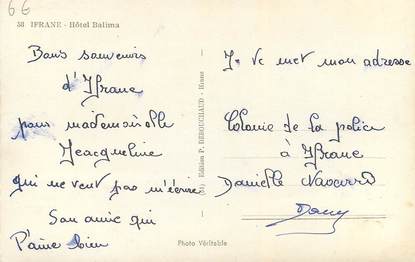 66
38 IFRANE - Hôtel Balima
Bons souvenirs
d'Ifrane
pour mademoiselle
Jeacqueline
qui ne veut pas m'écrire
Son amie qui
l'aime bien
Edition P. BEROUCHAUD - Ifrane
Je te met mon adresse
Colonie de la police
à Ifrane
Danielle
Dany
Photo Véritable